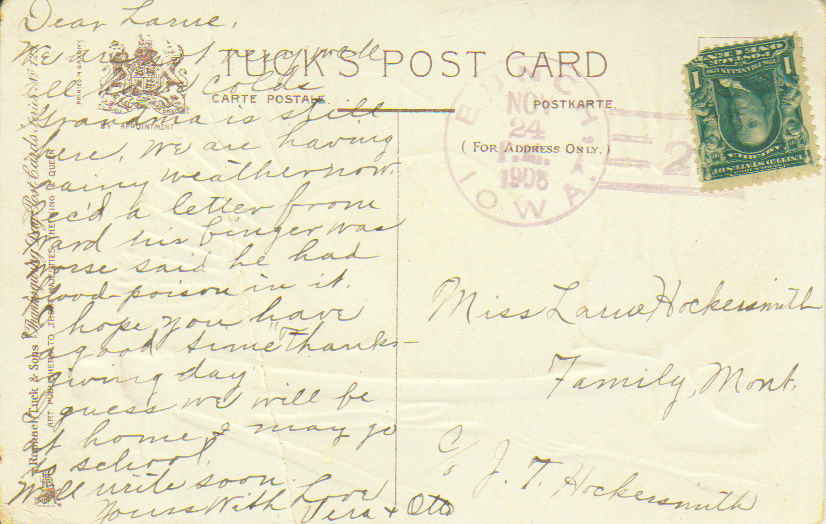 Dear Larue,
We are not very well
all have colds
Grandma is still
here. We are having
rainy weather now.
Rec'd a letter from
Ward his finger was
worse said he had
blood-poison in it.
I hope you have
a good time "Thanks-
giving day
guess we will be
at home, I may go
to school
Will write soon
Yours With Love
Vera & Otto
TUCK'S POST CARD
CARTE POSTALE.
POSTKARTE.
(FOR ADDRESS ONLY.)
BY APPOINTMENT
NOV
24
1908
IOWA.
2
Miss Larue Hockersmith
Family, Mont.
C/o J. T. Hockersmith
Raphael Tuck & Sons' "Thanksgiving Day" Post Cards
ART PUBLISHERS TO THEIR MAJESTIES THE KING & QUEEN